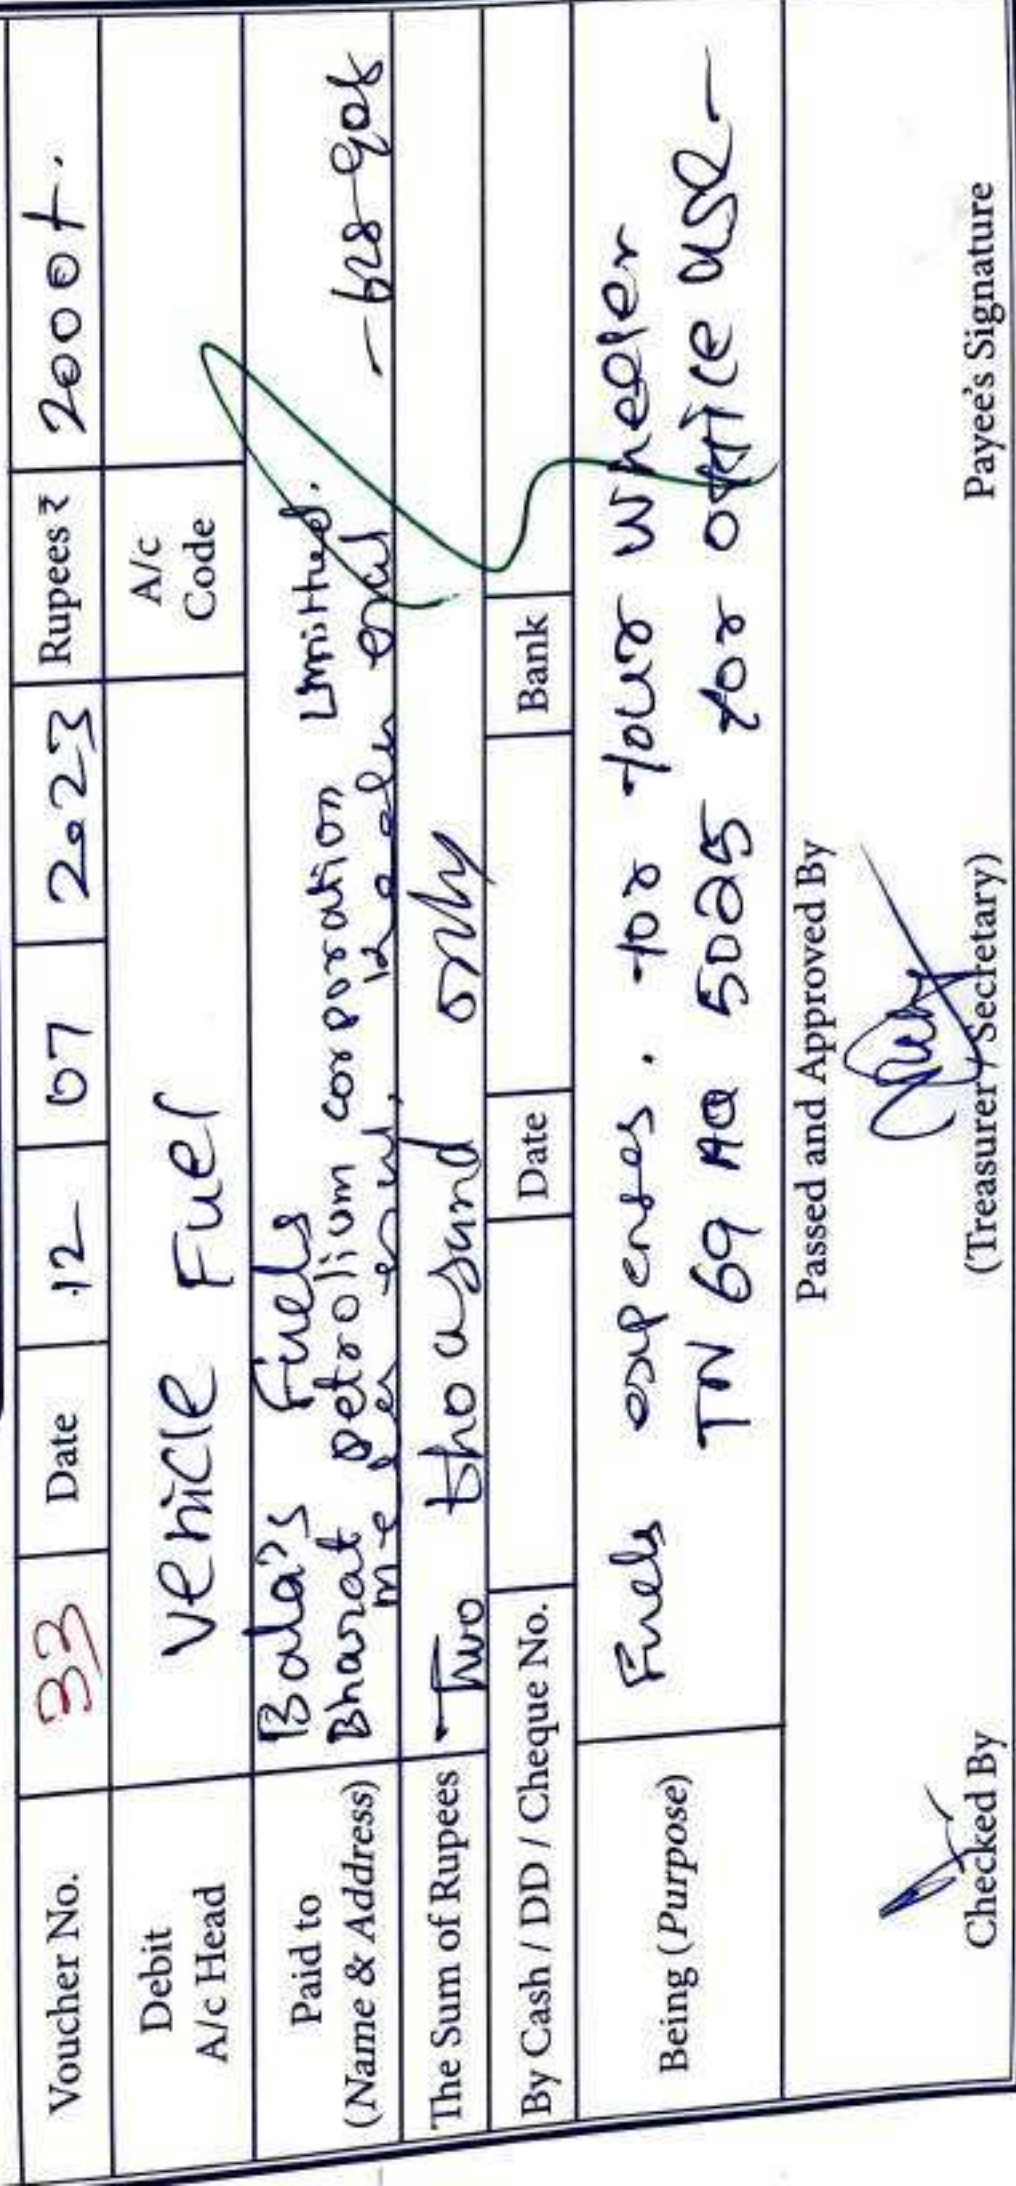 Voucher No. 33 Date 12 07 2023 Rupees ₹ 2000/.
Debit A/c Head Vehicle Fuel A/c Code
Paid to (Name & Address) Bala's Fuels
Bharat petrolium corporation Limitted.
- 628 908
The Sum of Rupees Two thousand only
By Cash / DD / Cheque No. Date Bank
Being (Purpose) Fuels expenses. for four wheeler
TN 69 AQ 5025 for office use -
Passed and Approved By
Checked By (Treasurer / Secretary) Payee's Signature